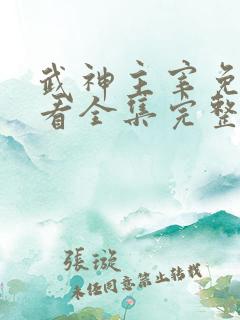 武神主宰免
看全集完整
張璇
未经同意禁止转载